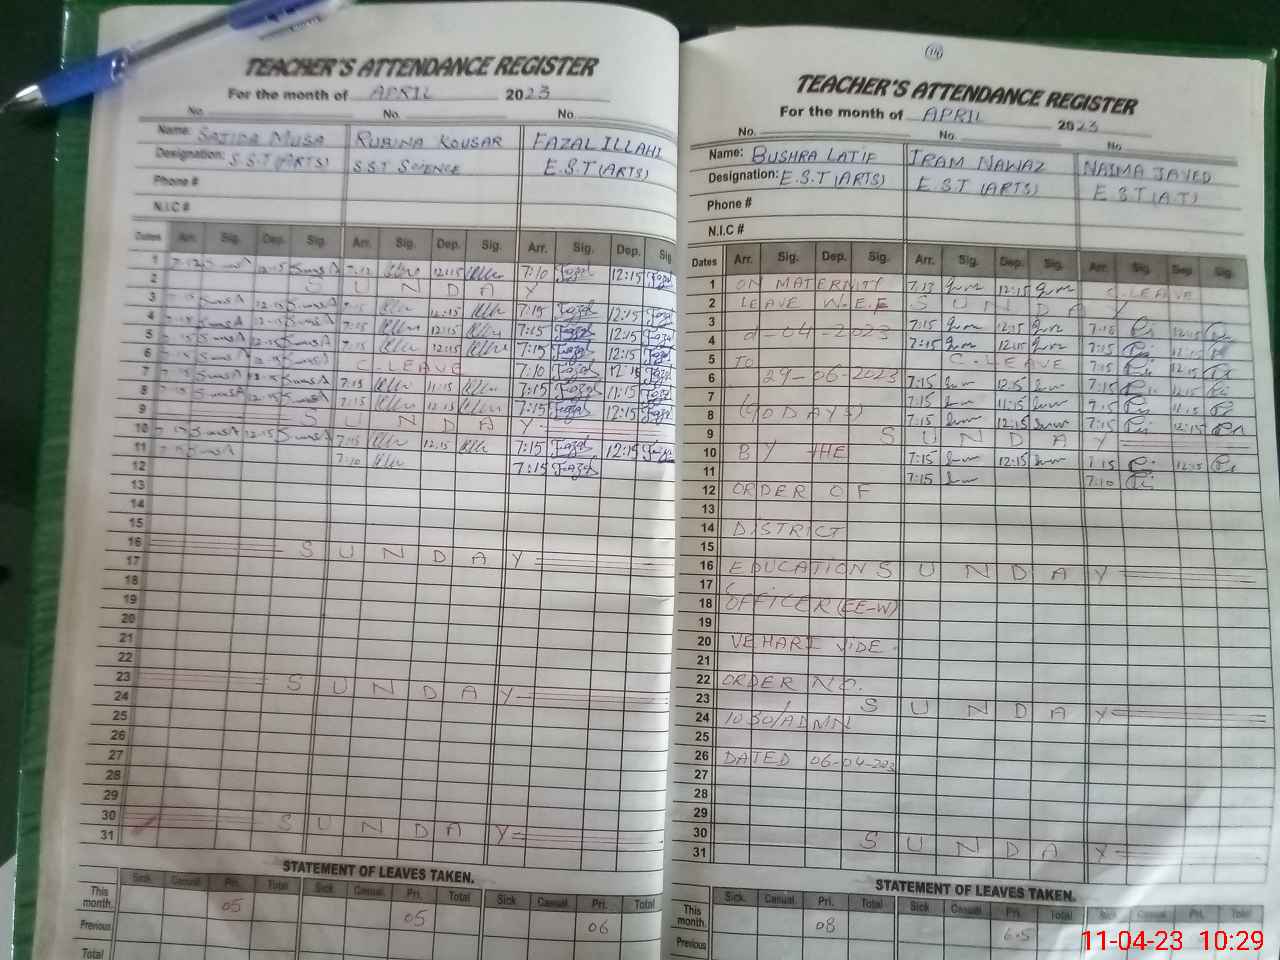 TEACHER'S ATTENDANCE REGISTER
For the month of APRIL 2023
No. No. No.
Name: SAJIDA MUSA RUBINA KOUSAR FAZAL ILLAHI
Designation: S.S.T (ARTS) S.S.T SCIENCE E.S.T (ARTS)
Phone #
N.I.C #
Dates Arr. Sig. Dep. Sig. Arr. Sig. Dep. Sig. Arr. Sig. Dep. Sig.
1 7:12 12:15 7:12 12:15 7:10 Fazal 12:15 Fazal
2 S U N D A Y
3 7:15 12:15 7:15 12:15 7:15 Fazal 12:15 Fazal
4 7:15 12:15 7:15 12:15 7:15 Fazal 12:15 Fazal
5 7:15 12:15 7:15 12:15 7:15 Fazal 12:15 Fazal
6 7:15 12:15 C.LEAVE 7:10 Fazal 12:15 Fazal
7 7:15 7:15 11:15 7:15 Fazal 11:15 Fazal
8 7:15 12:15 7:15 12:15 7:15 Fazal 12:15 Fazal
9 S U N D A Y
10 7:15 12:15 7:15 12:15 7:15 Fazal 12:15 Fazal
11 7:15 7:10 7:15 Fazal
12
13
14
15
16 S U N D A Y
17
18
19
20
21
22
23 S U N D A Y
24
25
26
27
28
29
30 S U N D A Y
31
STATEMENT OF LEAVES TAKEN.
Sick Casual Pri. Total Sick Casual Pri. Total Sick Casual Pri. Total
This month.
05 05 06
Previous
Total
114
TEACHER'S ATTENDANCE REGISTER
For the month of APRIL 2023
No. No. No.
Name: BUSHRA LATIF IRAM NAWAZ NAIMA JAVED
Designation: E.S.T (ARTS) E.S.T (ARTS) E.S.T (A.T)
Phone #
N.I.C #
Dates Arr. Sig. Dep. Sig. Arr. Sig. Dep. Sig. Arr. Sig. Dep. Sig.
1 ON MATERNITY 7:13 12:15 C.LEAVE
2 LEAVE W.E.F S U N D A Y
3 7:15 12:15 7:15 12:15
4 -04-2023 7:15 12:15 7:15 12:15
5 TO C.LEAVE 7:15 12:15
6 29-06-2023 7:15 12:15 7:15 12:15
7 7:15 11:15 7:15 11:15
8 (90 DAYS) 7:15 12:15 7:15 12:15
9 S U N D A Y
10 BY THE 7:15 12:15 7:15 12:15
11 7:15 7:10
12 ORDER OF
13
14 DISTRICT
15
16 EDUCATION S U N D A Y
17
18 OFFICER (EE-W)
19
20 VEHARI VIDE
21
22 ORDER NO.
23 S U N D A Y
24 1030/ADMN
25
26 DATED 06-04-2023
27
28
29
30 S U N D A Y
31
STATEMENT OF LEAVES TAKEN.
Sick. Casual. Pri. Total Sick Casual Pri. Total Sick Casual. Pri. Total
This month.
08 6.5
Previous
11-04-23 10:29